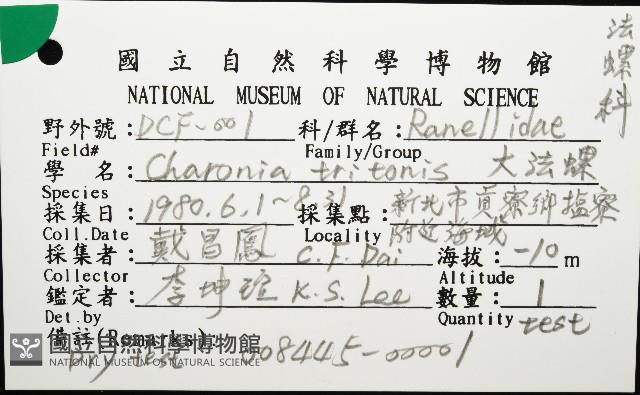 法螺科
國立自然科學博物館
NATIONAL MUSEUM OF NATURAL SCIENCE
野外號：DCF-001 科/群名：Ranellidae
Field# Family/Group
學名：Charonia tritonis 大法螺
Species
採集日：1980.6.1~8.31 採集點：新北市貢寮鄉鹽寮
附近海域
Coll.Date Locality
採集者：戴昌鳳 C.F. Dai 海拔：-10 m
Collector Altitude
鑑定者：李坤瑄 K.S. Lee 數量：1
Det.by Quantity test
備註(Remarks)
國立自然科學博物館
NATIONAL MUSEUM OF NATURAL SCIENCE
008445-00001